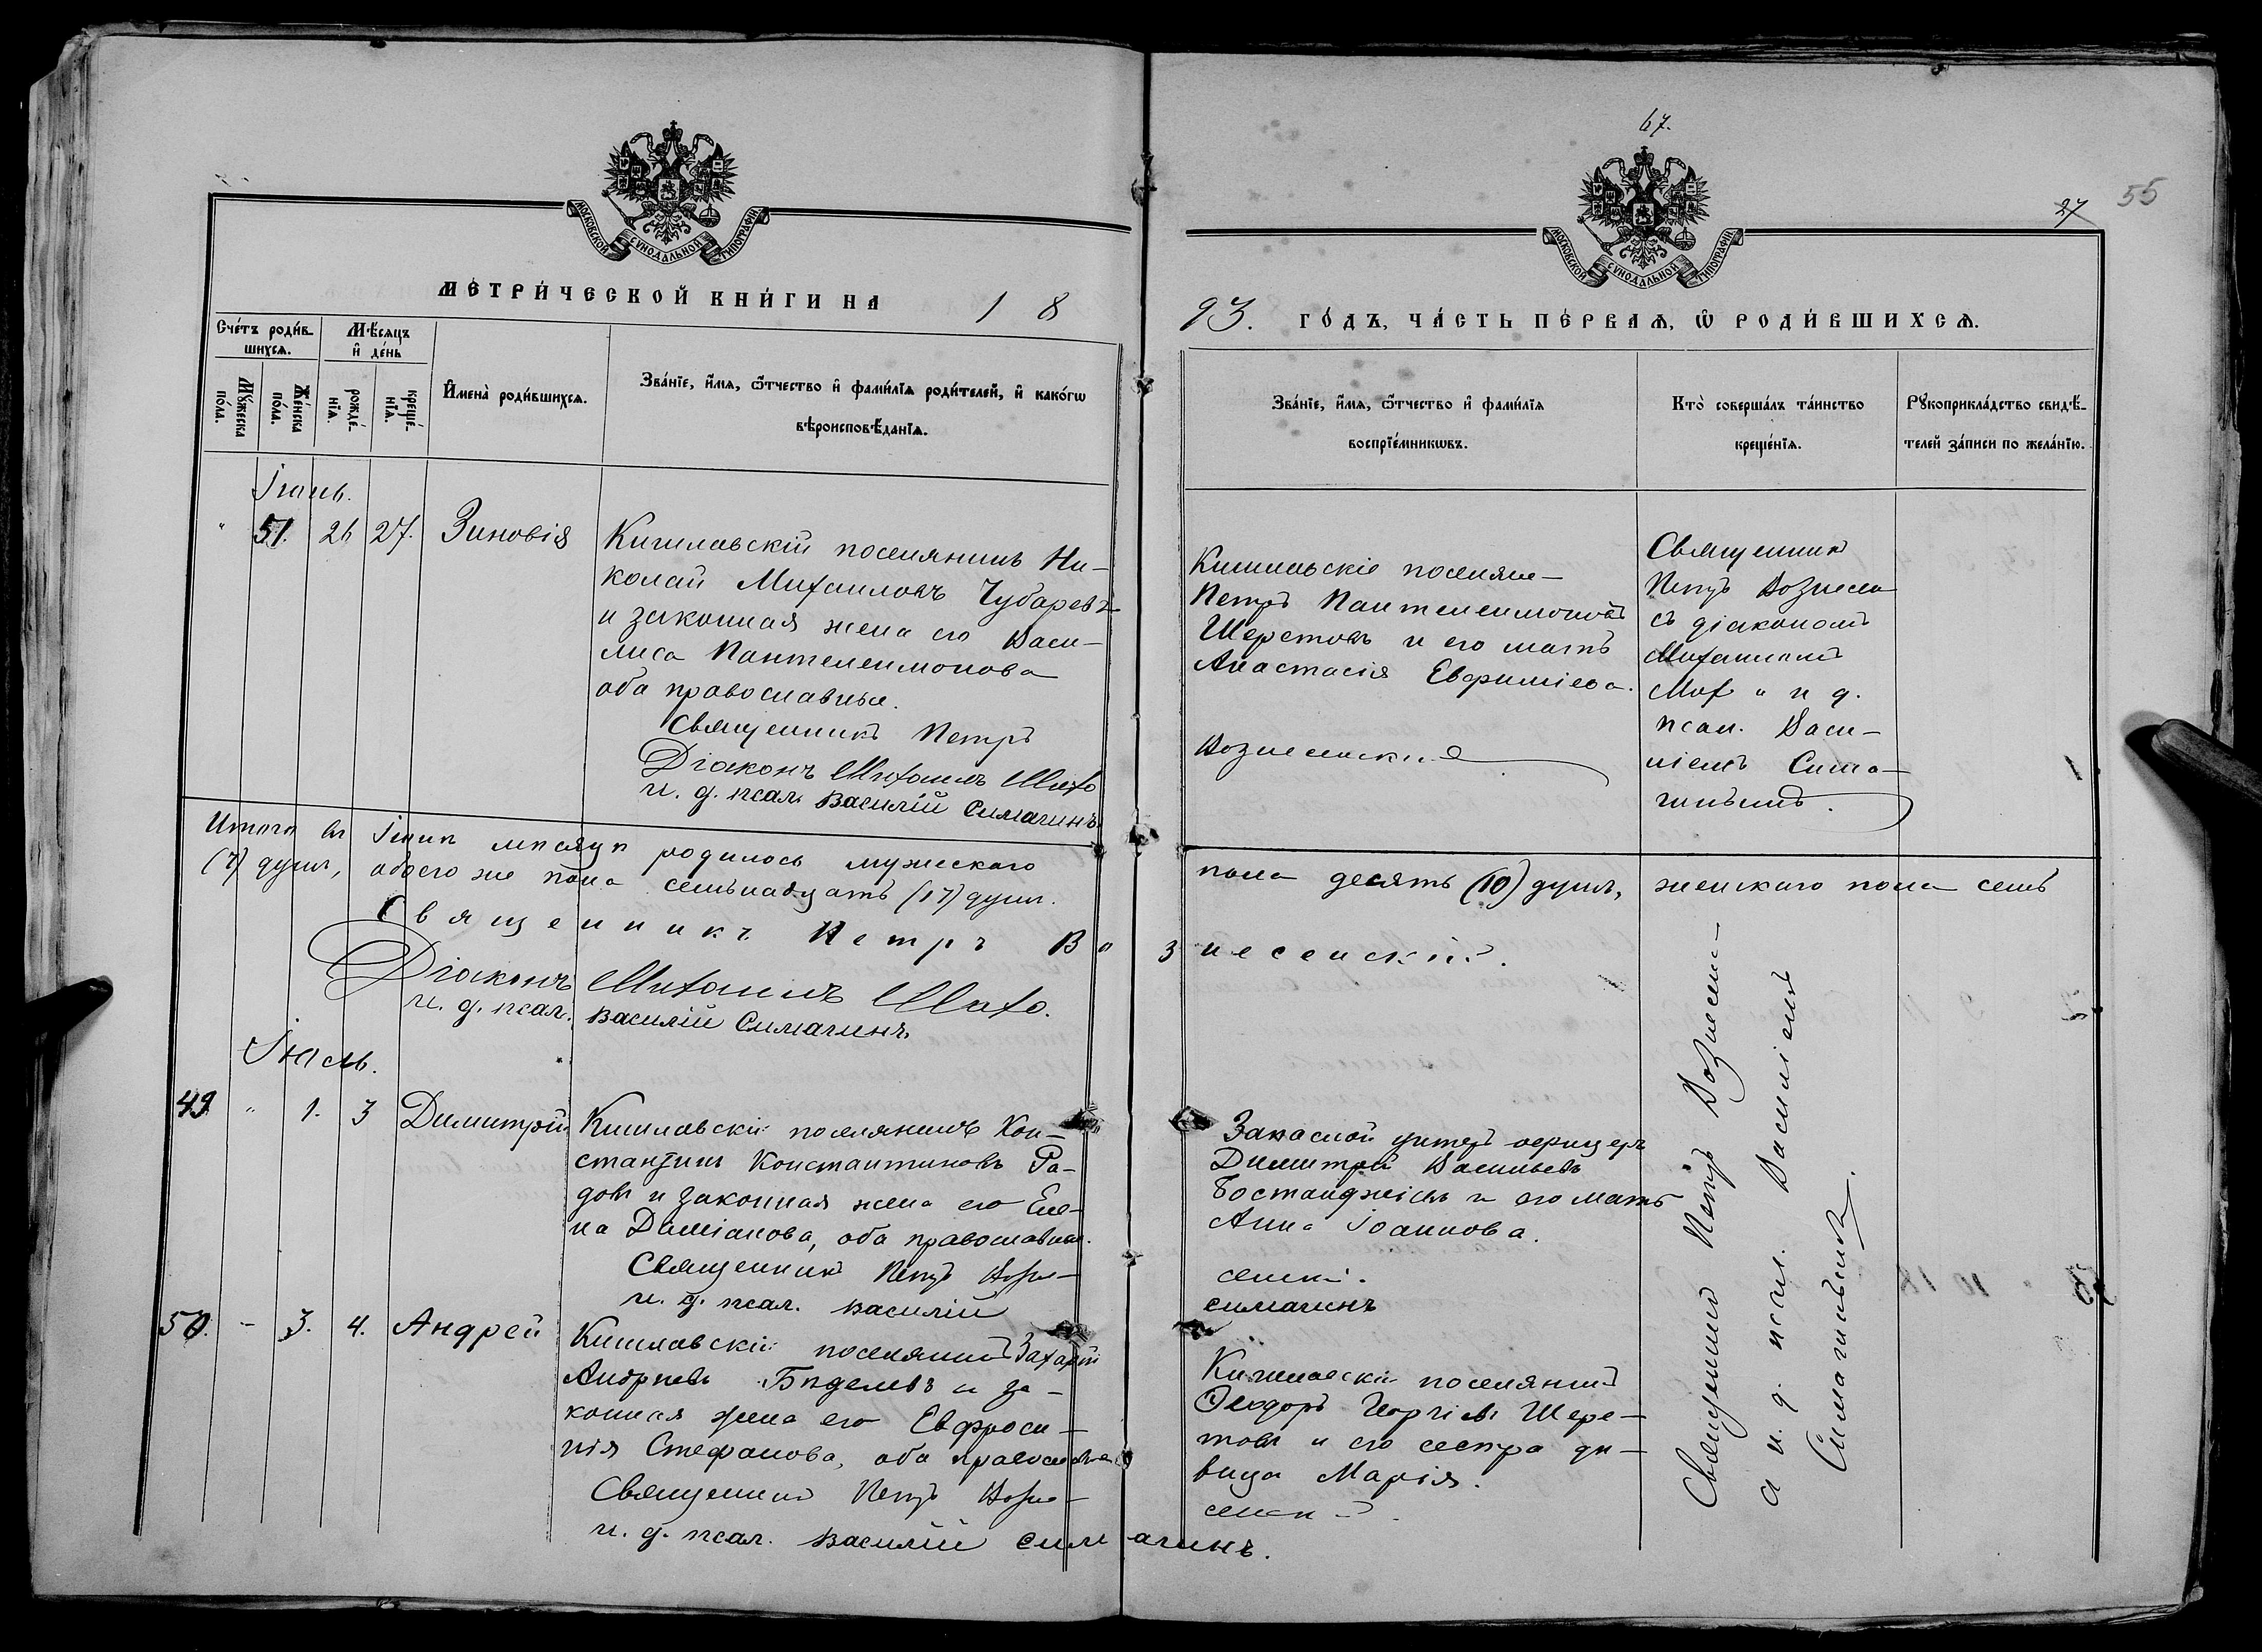 67.
27
55
МОСКОВСКОЙ СѴНОДАЛЬНОЙ ТИПОГРАФІИ
МОСКОВСКОЙ СѴНОДАЛЬНОЙ ТИПОГРАФІИ
МЕТРИ́ЧЕСКОЙ КНИ́ГИ НА 18
93. ГО́ДЪ, ЧА́СТЬ ПЕ́РВАѦ, Ѡ҆ РОДИ́ВШИХСѦ.
Сче́тъ роди́в-
шихсѧ.
Мꙋ́жеска по́ла.
Же́нска по́ла.
Мѣ́сѧцъ
и҆ де́нь
рожде́-
нїѧ.
креще́-
нїѧ.
И҆мена̀ роди́вшихсѧ.
Зва́нїе, и҆́мѧ, ѻ҆́тчество и҆ фами́лїѧ роди́телей, и҆ како́гѡ
вѣроисповѣ́данїѧ.
Зва́нїе, и҆́мѧ, ѻ҆́тчество и҆ фами́лїѧ
воспрїе́мникѡвъ.
Кто̀ соверша́лъ та́инство
креще́нїѧ.
Рꙋкоприкла́дство свидѣ́-
телей за́писи по жела́нїю.
Іюнь.
" 51. 26 27. Зиновія
Кишлавскій поселянинъ Ни-
колай Михаиловъ Чубаревъ
и законная жена его Васи-
лиса Пантелеимонова
оба православные.
Священникъ Петръ
Діаконъ Михаилъ Махо
и. д. псал. Василій Симагинъ.
Кишлавскіе поселяне
Петръ Пантелеимоновъ
Шеретовъ и его мать
Анастасія Евфиміева.
Вознесенскій
Священник
Петръ Вознесен
съ діакономъ
Михаиломъ
Мах и и д.
псал. Васи-
ліемъ Сима-
гинымъ.
Итого въ Іюнѣ мѣсяцѣ родилось мужескаго
пола десять (10) душъ, женскаго пола семь
(7) душъ, обоего же пола семьнадцать (17) душъ.
Священникъ Петръ Вознесенскій.
Діаконъ Михаилъ Махо.
и. д. псал. Василій Симагинъ
Іюль.
49. " 1. 3 Димитрій
Кишлавскій поселянинъ Кон-
стантинъ Константиновъ Ра-
довъ и законная жена его Еле-
на Даміанова, оба православные.
Священникъ Петръ Возне-
и. д. псал. Василій
Запасной унтеръ офицеръ
Димитрій Васильевъ
Бостанджіевъ и его мать
Анна Іоаннова.
сенскій.
Симагинъ
50. - 3. 4. Андрей
Кишлавскій поселянинъ Захарій
Андреевъ Бѣделевъ и за-
конная жена его Евфроси-
нія Стефанова, оба православные
Священникъ Петръ Возне-
и. д. псал. Василій Симагинъ.
Кишлавскій поселянинъ
Ѳеодоръ Георгіевъ Шере-
товъ и его сестра дѣ-
вица Марія.
сенскій.
Священникъ Петръ Вознесен-
а и. д. псал. Василіемъ
Симагинымъ.